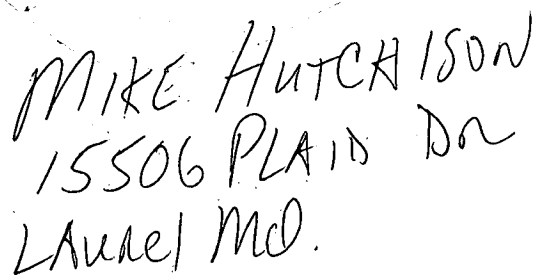 MIKE HUTCHISON
15506 PLAID DR
LAUREL MD.